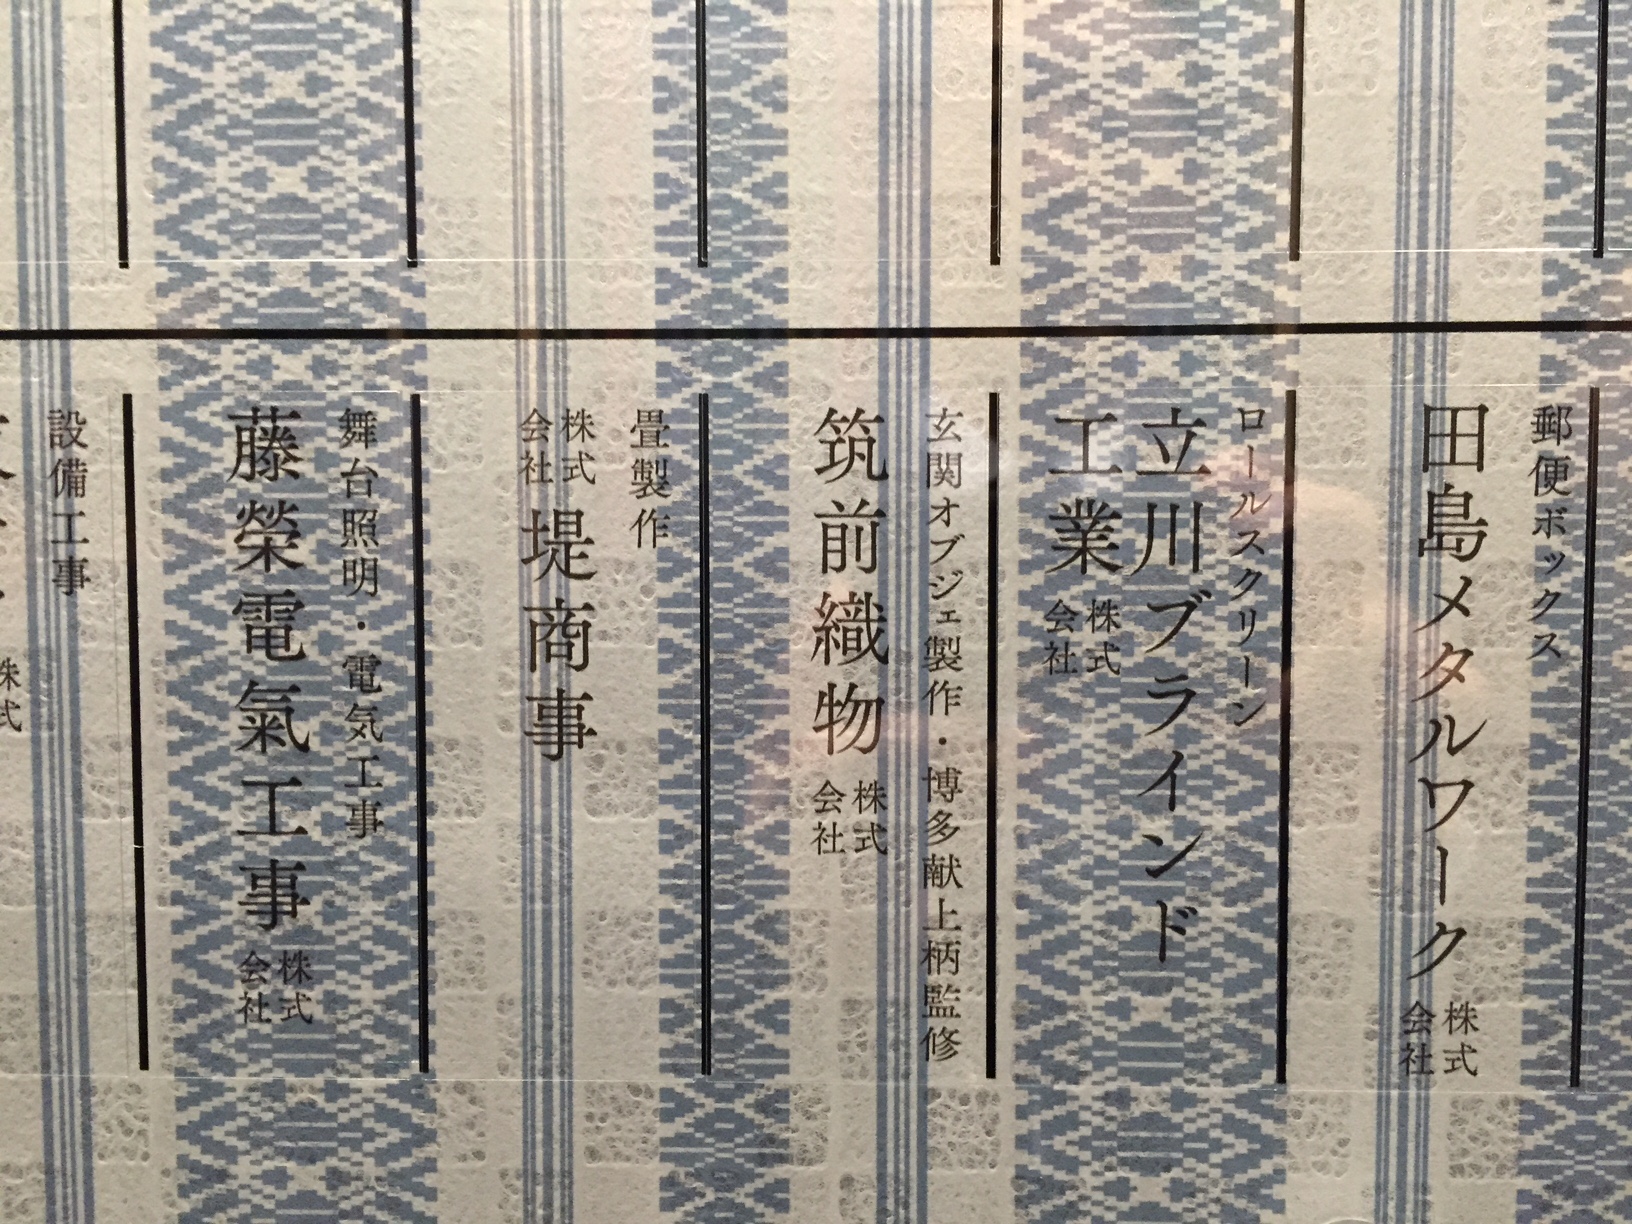 郵便ボックス
田島メタルワーク株式会社
ロールスクリーン
立川ブラインド
工業株式会社
玄関オブジェ製作・博多献上柄監修
筑前織物株式会社
畳製作
株式会社堤商事
舞台照明・電気工事
藤榮電氣工事株式会社
設備工事
株式